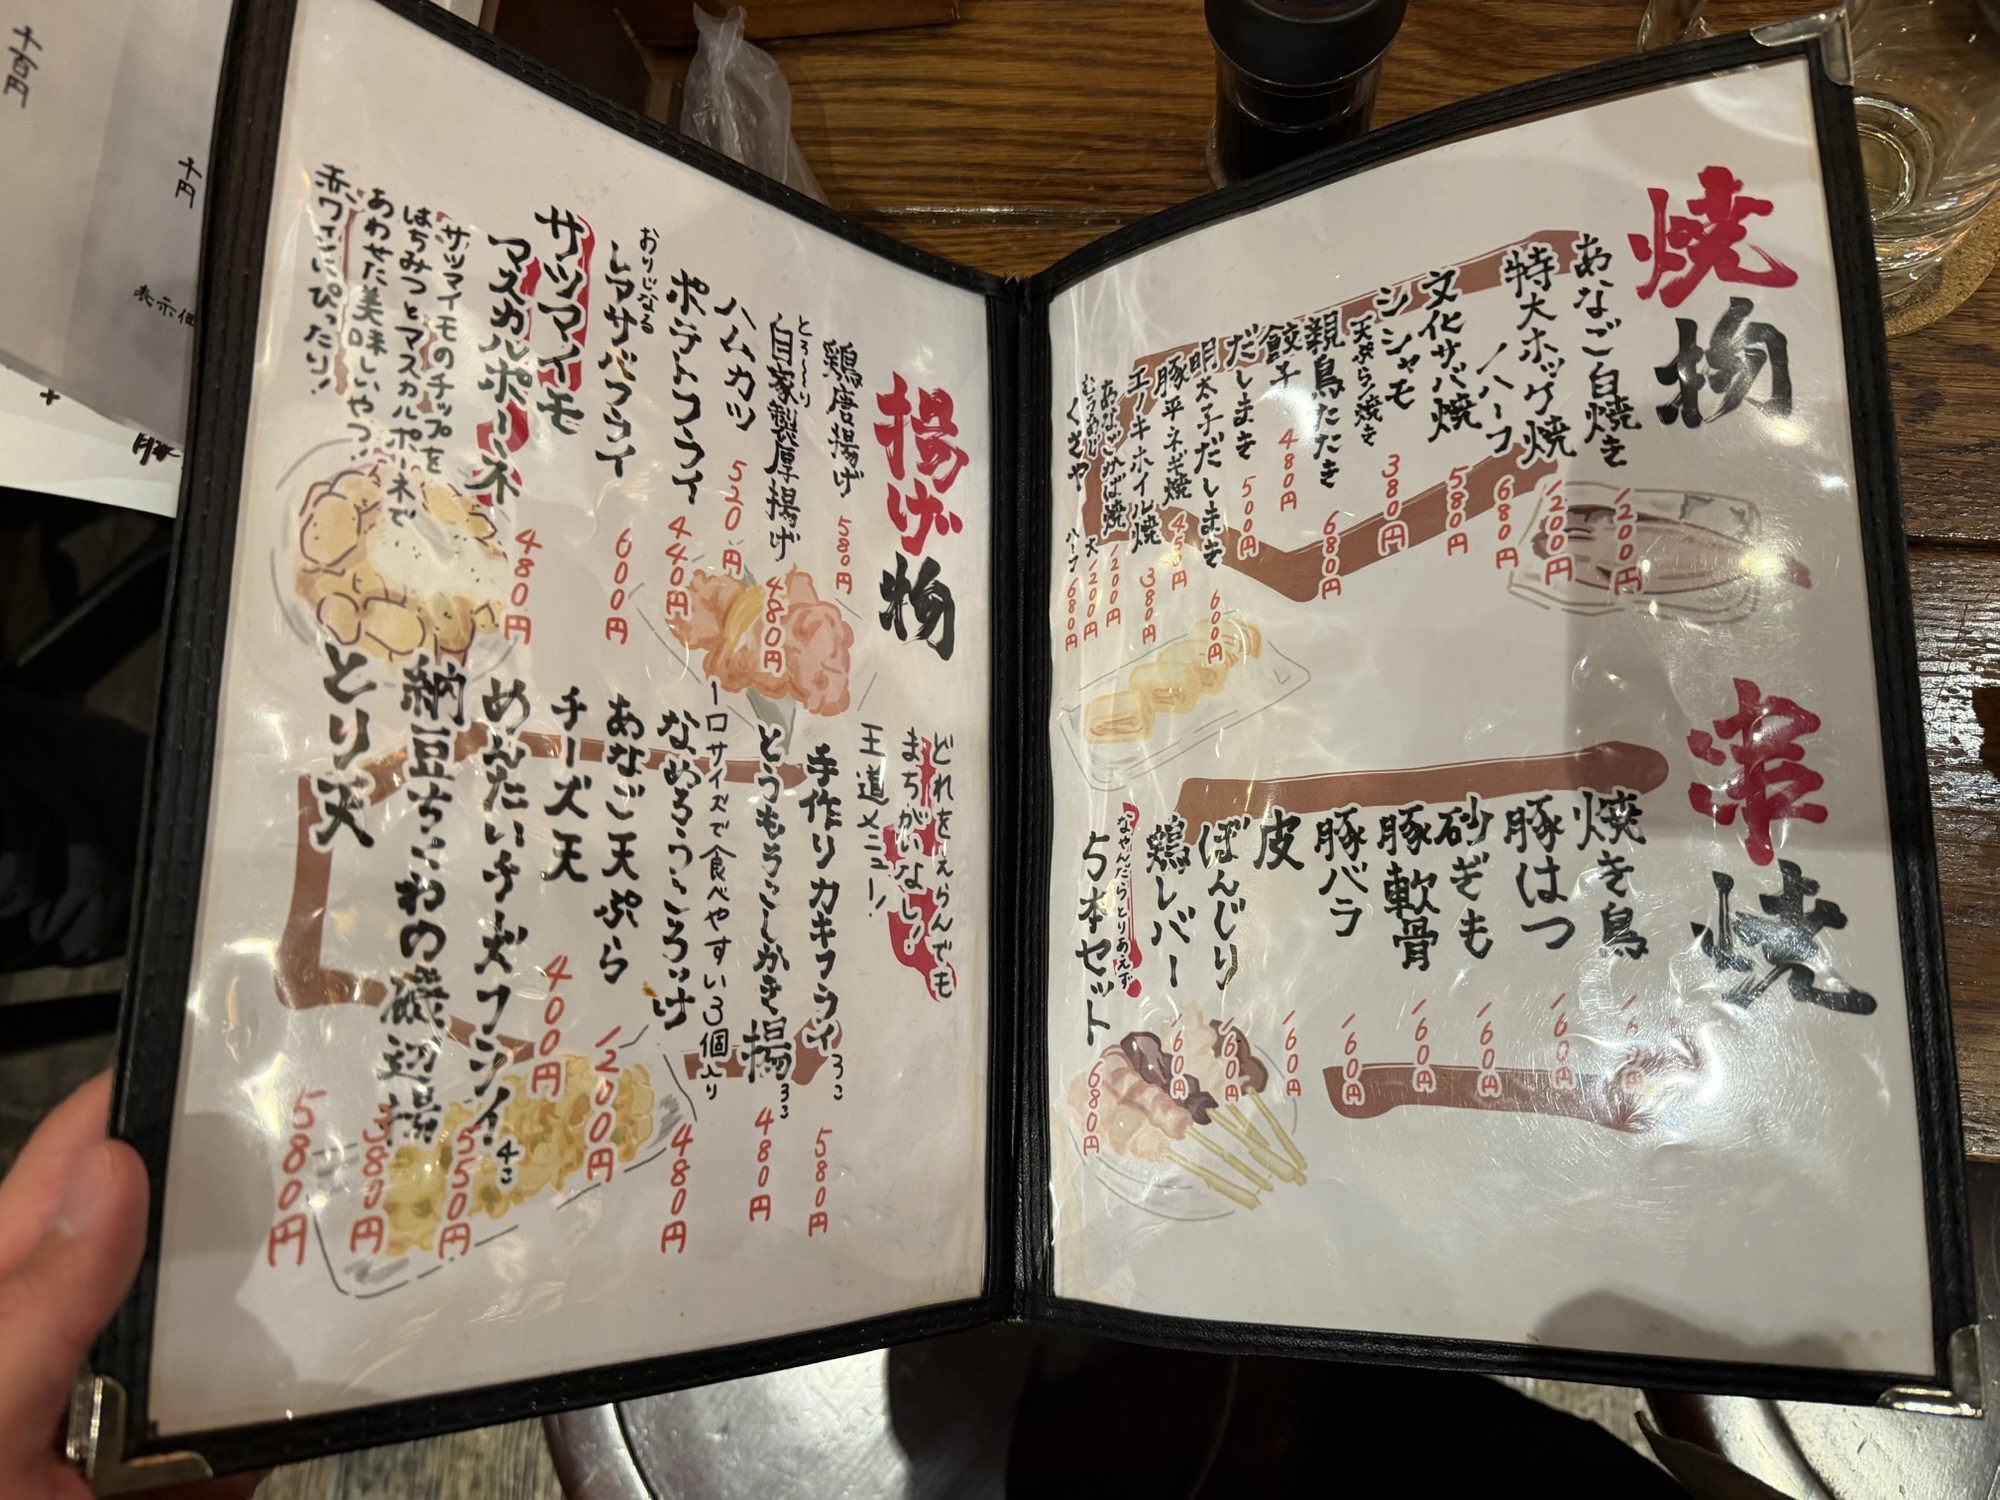 焼物
あなご白焼き 1200円
特大ホッケ焼 1200円
ハーフ 680円
文化サバ焼 580円
シシャモ 380円
天ぷら焼き
親鳥たたき 680円
餃子 480円
だしまき 500円
明太子だしまき 600円
豚平ネギ焼 45円
エノキホイル焼 380円
あなごかば焼 1200円
むろあじくさや 大 1200円
ハーフ 680円
串焼
焼き鳥 160円
豚はつ 160円
砂ぎも 160円
豚軟骨 160円
豚バラ 160円
皮 160円
ぼんじり 160円
鶏レバー 160円
なやんだらとりあえず
5本セット 680円
揚げ物
鶏唐揚げ 580円
とろ〜〜り
自家製厚揚げ 480円
ハムカツ 520円
ポテトフライ 440円
おりじなる
レアサバフライ 600円
サツマイモ
マスカルポーネ 480円
サツマイモのチップを
はちみつとマスカルポーネで
あわせた美味しいやつ!
赤ワインにぴったり!
どれをえらんでも
まちがいなし!
王道メニュー!
手作りカキフライ 3こ 580円
とうもろこしかき揚 3こ 480円
一口サイズで食べやすい3個入り
なめろうころっけ 480円
あなご天ぷら 1200円
チーズ天 400円
めんたいチーズフライ 4こ 550円
納豆ちくわの磯辺揚 380円
とり天 580円
千百円
千円